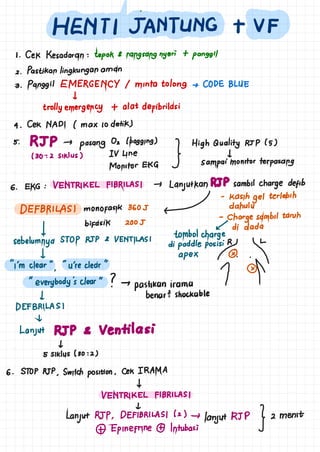 HENTI JANTUNG + VF
1. Cek Kesadaran : tepok & rangsang nyeri + panggil
2. Pastikan lingkungan aman
3. Panggil EMERGENCY / minta tolong → CODE BLUE
↓
trolly emergency + alat defibrilasi
4. Cek NADI ( max 10 detik)
5. RJP → pasang O₂ (bagging) } High Quality RJP (5)
(30:2 siklus) IV Line ↓
Monitor EKG sampai monitor terpasang
6. EKG : VENTRIKEL FIBRILASI → Lanjutkan RJP sambil charge defib
- Kasih gel terlebih dahulu
DEFBRILASI monofasik 360 J
bifasik 200 J
- Charge sambil taruh di dada
↓
sebelumnya STOP RJP & VENTILASI
tombol charge di paddle posisi apex
R L
↓
"i'm clear", "u're clear"
"everybody's clear" ? → pastikan irama benar² shockable
↓
DEFBRILASI
↓
Lanjut RJP & Ventilasi
↓
5 siklus (30:2)
6. STOP RJP, Switch position, Cek IRAMA
↓
VENTRIKEL FIBRILASI
↓
Lanjut RJP, DEFIBRILASI (2) → lanjut RJP } 2 menit
⊕ Epinefrine ⊕ Intubasi